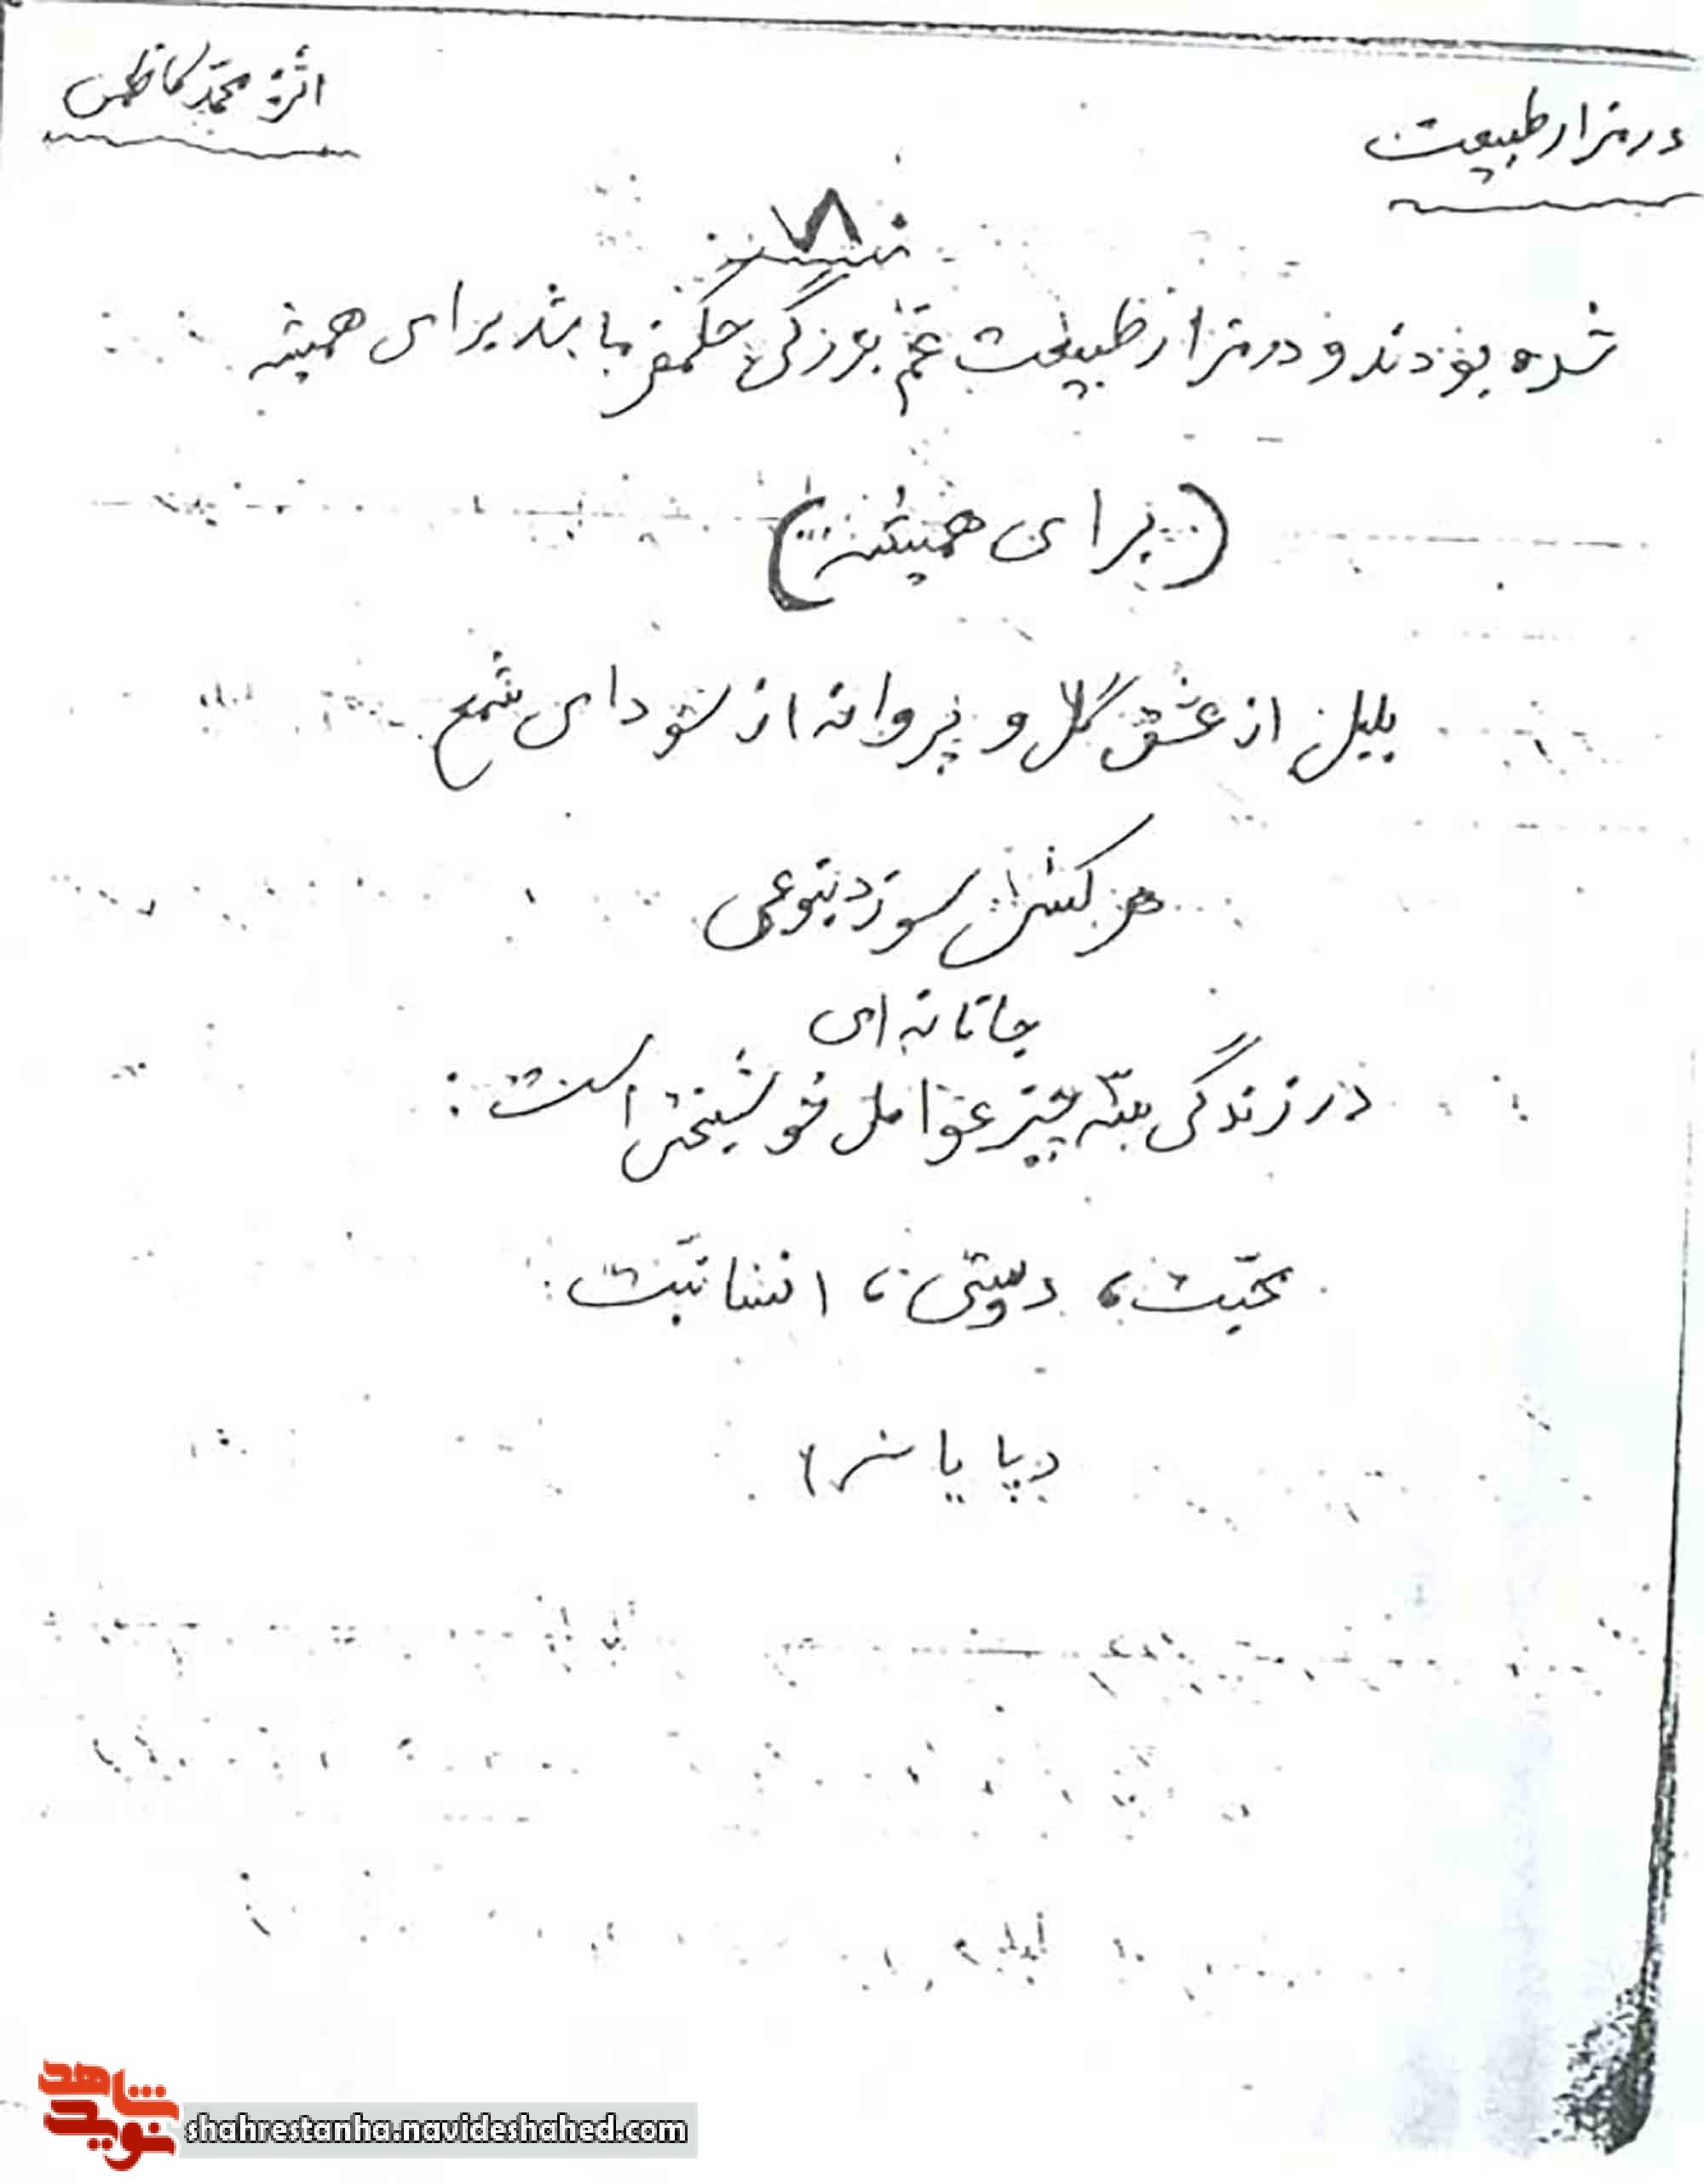 در مزار طبیعت
اثر: محمد کاظمی
۸
شده بودند و در مزار طبیعت غم بزرگی حکمفرما شد برای همیشه
(برای همیشه...)
بلبل از عشق گل و پروانه از سودای شمع
هر کسی سوزد بنوعی
جانانه ای
در زندگی سه چیز عوامل خوشبختی است:
محبّت، دوستی، انسانیّت
«پایان»
شاهد
نوید
shahrestanha.navideshahed.com